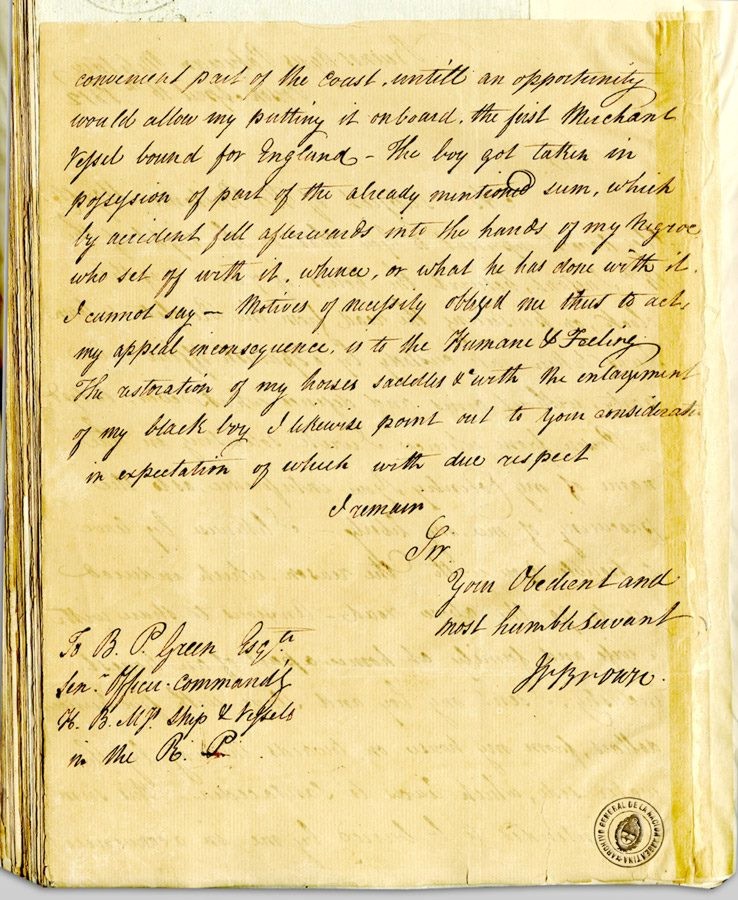 convenient part of the Coast, untill an opportunity
would allow my putting it onboard, the first Merchant
Vessel bound for England – The boy got taken in
possession of part of the already mentioned sum, which
by accident fell afterwards into the hands of my Negroe
who set off with it, whence, or what he has done with it,
I cannot say – Motives of necessity obliged me thus to act,
my appeal inconsequence, is to the Humane & Feeling
The restoration of my horses saddles &c with the enlargement
of my black boy I likewise point out to your considerat
in expectation of which with due respect
I remain
Sir
Your Obedient and
most humble servant
To B. P. Green Esqre
Senr Officer Commandg
H. B. Mys Ship & Vessels
in the R. P.
WBrown.
ARCHIVO GENERAL DE LA NACION ARGENTINA